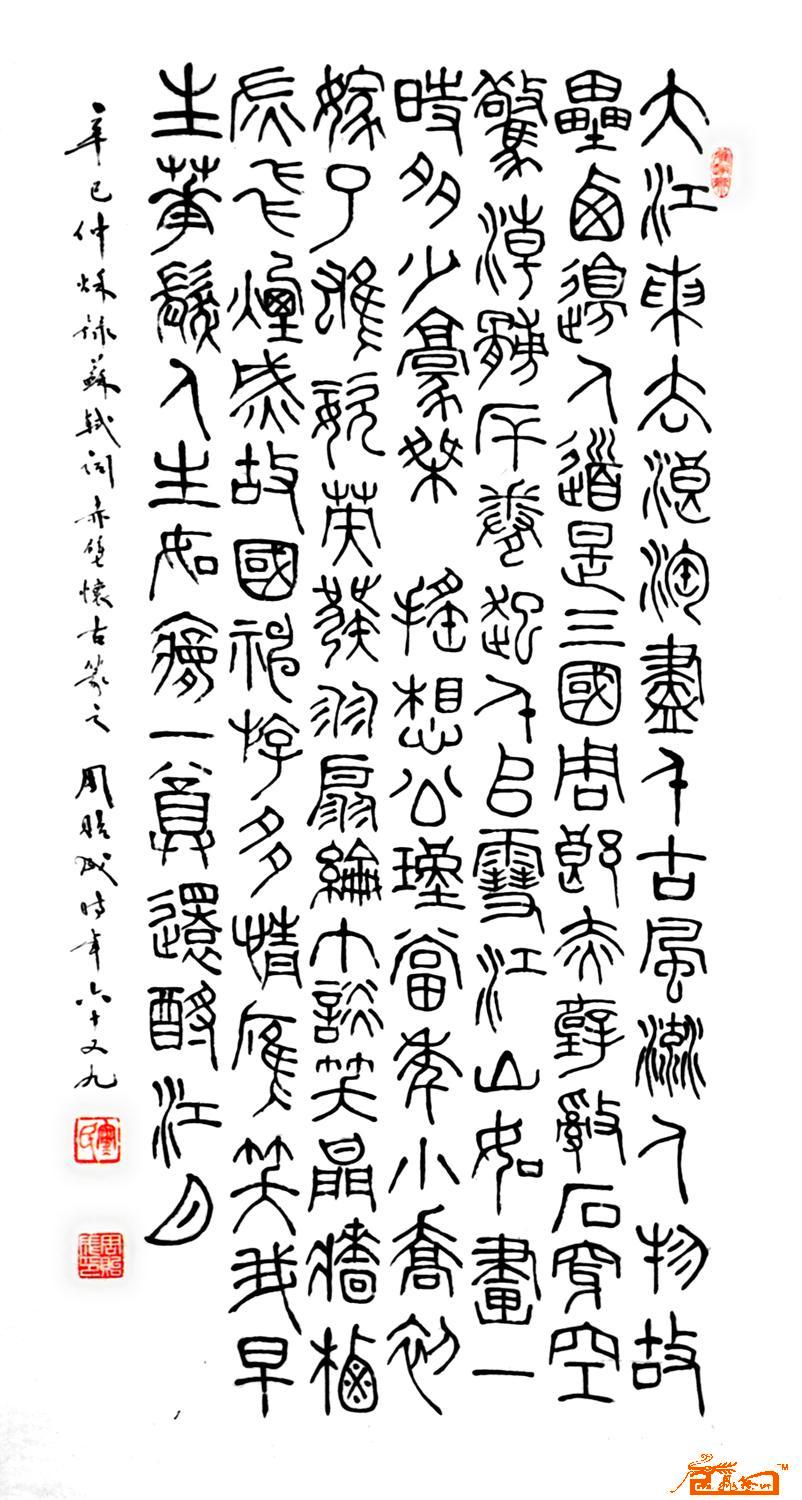 大江東去浪淘盡千古風流人物故
壘西邊人道是三國周郎赤壁亂石穿空
驚濤拍岸卷起千堆雪江山如畫一
時多少豪桀 遙想公瑾當年小喬初
嫁了雄姿英發羽扇綸巾談笑間檣櫓
灰飛煙滅故國神游多情應笑我早
生華髮人生如夢一尊還酹江月
辛巳仲秌錄蘇軾詞赤壁懷古篆之 周貽成時年六十又九